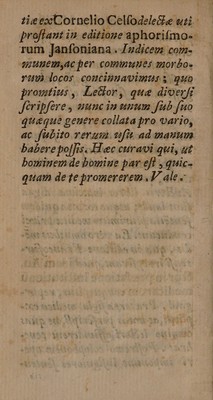 tiæ ex Cornelio Celso delectæ uti
prostant in editione aphorismo-
rum Jansoniana. Indicem com-
munem, ac per communes morbo-
rum locos concinnavimus; quo
promtius, Lector, quæ diversi
scripsere, nunc in unum sub suo
quæque genere collata pro vario,
ac subito rerum usu ad manum
habere possis. Hæc curavi qui, ut
hominem de homine par est, quic-
quam de te promererem. Vale.